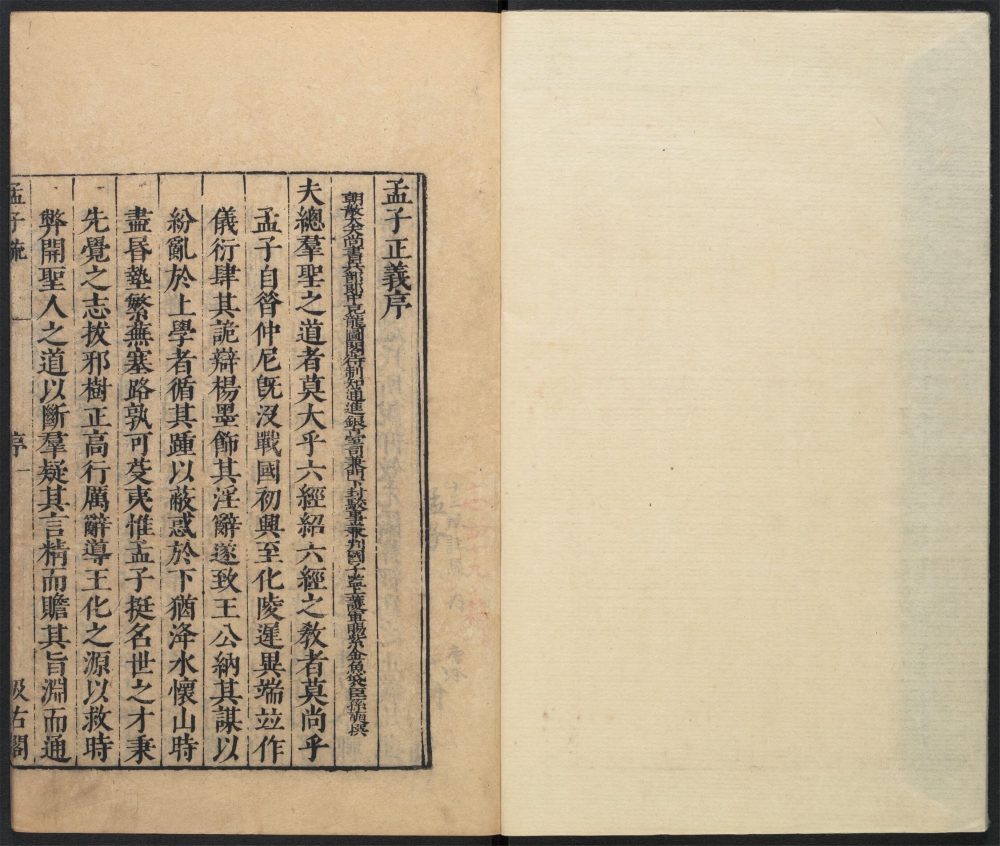 孟子正義序
朝散大夫尚書兵部郎中充龍圖閣待制知通進銀臺司兼門下封駁事兼判國子監上護軍賜紫金魚袋臣孫奭撰
夫總羣聖之道者莫大乎六經紹六經之敎者莫尚乎
孟子自昝仲尼旣沒戰國初興至化陵遲異端竝作
儀衍肆其詭辯楊墨飾其淫辭遂致王公納其謀以
紛亂於上學者循其踵以蔽惑於下猶洚水懷山時
盡昬墊繁蕪塞路孰可芟夷惟孟子挺名世之才秉
先覺之志拔邪樹正高行厲辭導王化之源以救時
弊開聖人之道以斷羣疑其言精而贍其旨淵而通
孟子疏 序 一 汲古閣